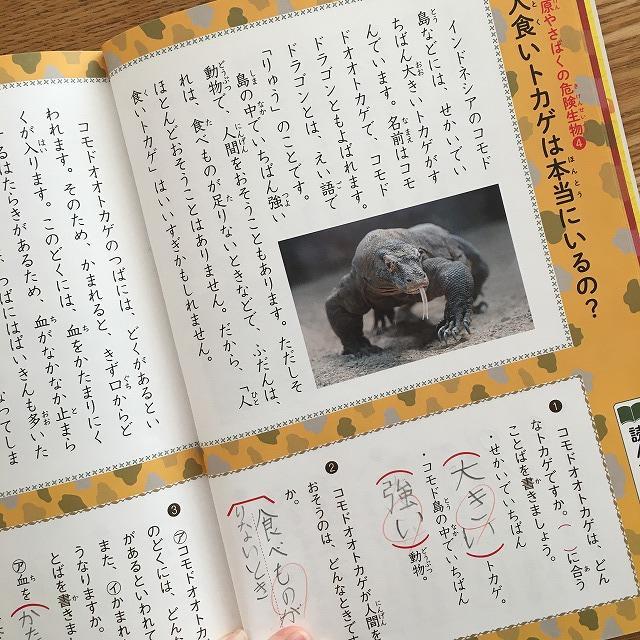 原やさばくの危険生物❹
人食いトカゲは本当にいるの?
インドネシアのコモド
島などには、せかいでい
ちばん大きいトカゲがす
んでいます。名前はコモ
ドオオトカゲで、コモド
ドラゴンともよばれます。
ドラゴンとは、えい語で
「りゅう」のことです。
島の中でいちばん強い
動物で、人間をおそうこともあります。ただしそ
れは、食べものが足りないときなどで、ふだんは、
ほとんどおそうことはありません。だから、「人
食いトカゲ」はいいすぎかもしれません。
コモドオオトカゲのつばには、どくがあるとい
われます。そのため、かまれると、きず口からど
くが入ります。このどくには、血をかたまりにく
するはたらきがあるため、血がなかなか止まら
つばにはばいきんも多いた
なってしま
❶
コモドオオトカゲは、どん
なトカゲですか。( )に合う
ことばを書きましょう。
・せかいでいちばん
(大きい)トカゲ。
・コモド島の中でいちばん
(強い)動物。
❷
コモドオオトカゲが人間を
おそうのは、どんなときです
か。
食べものが
りないとき
❸
㋐コモドオオトカゲの
のどくには、どん
があるといわれて
また、㋑かまれ
うなりますか。
とばを書きま
㋐血を(かた